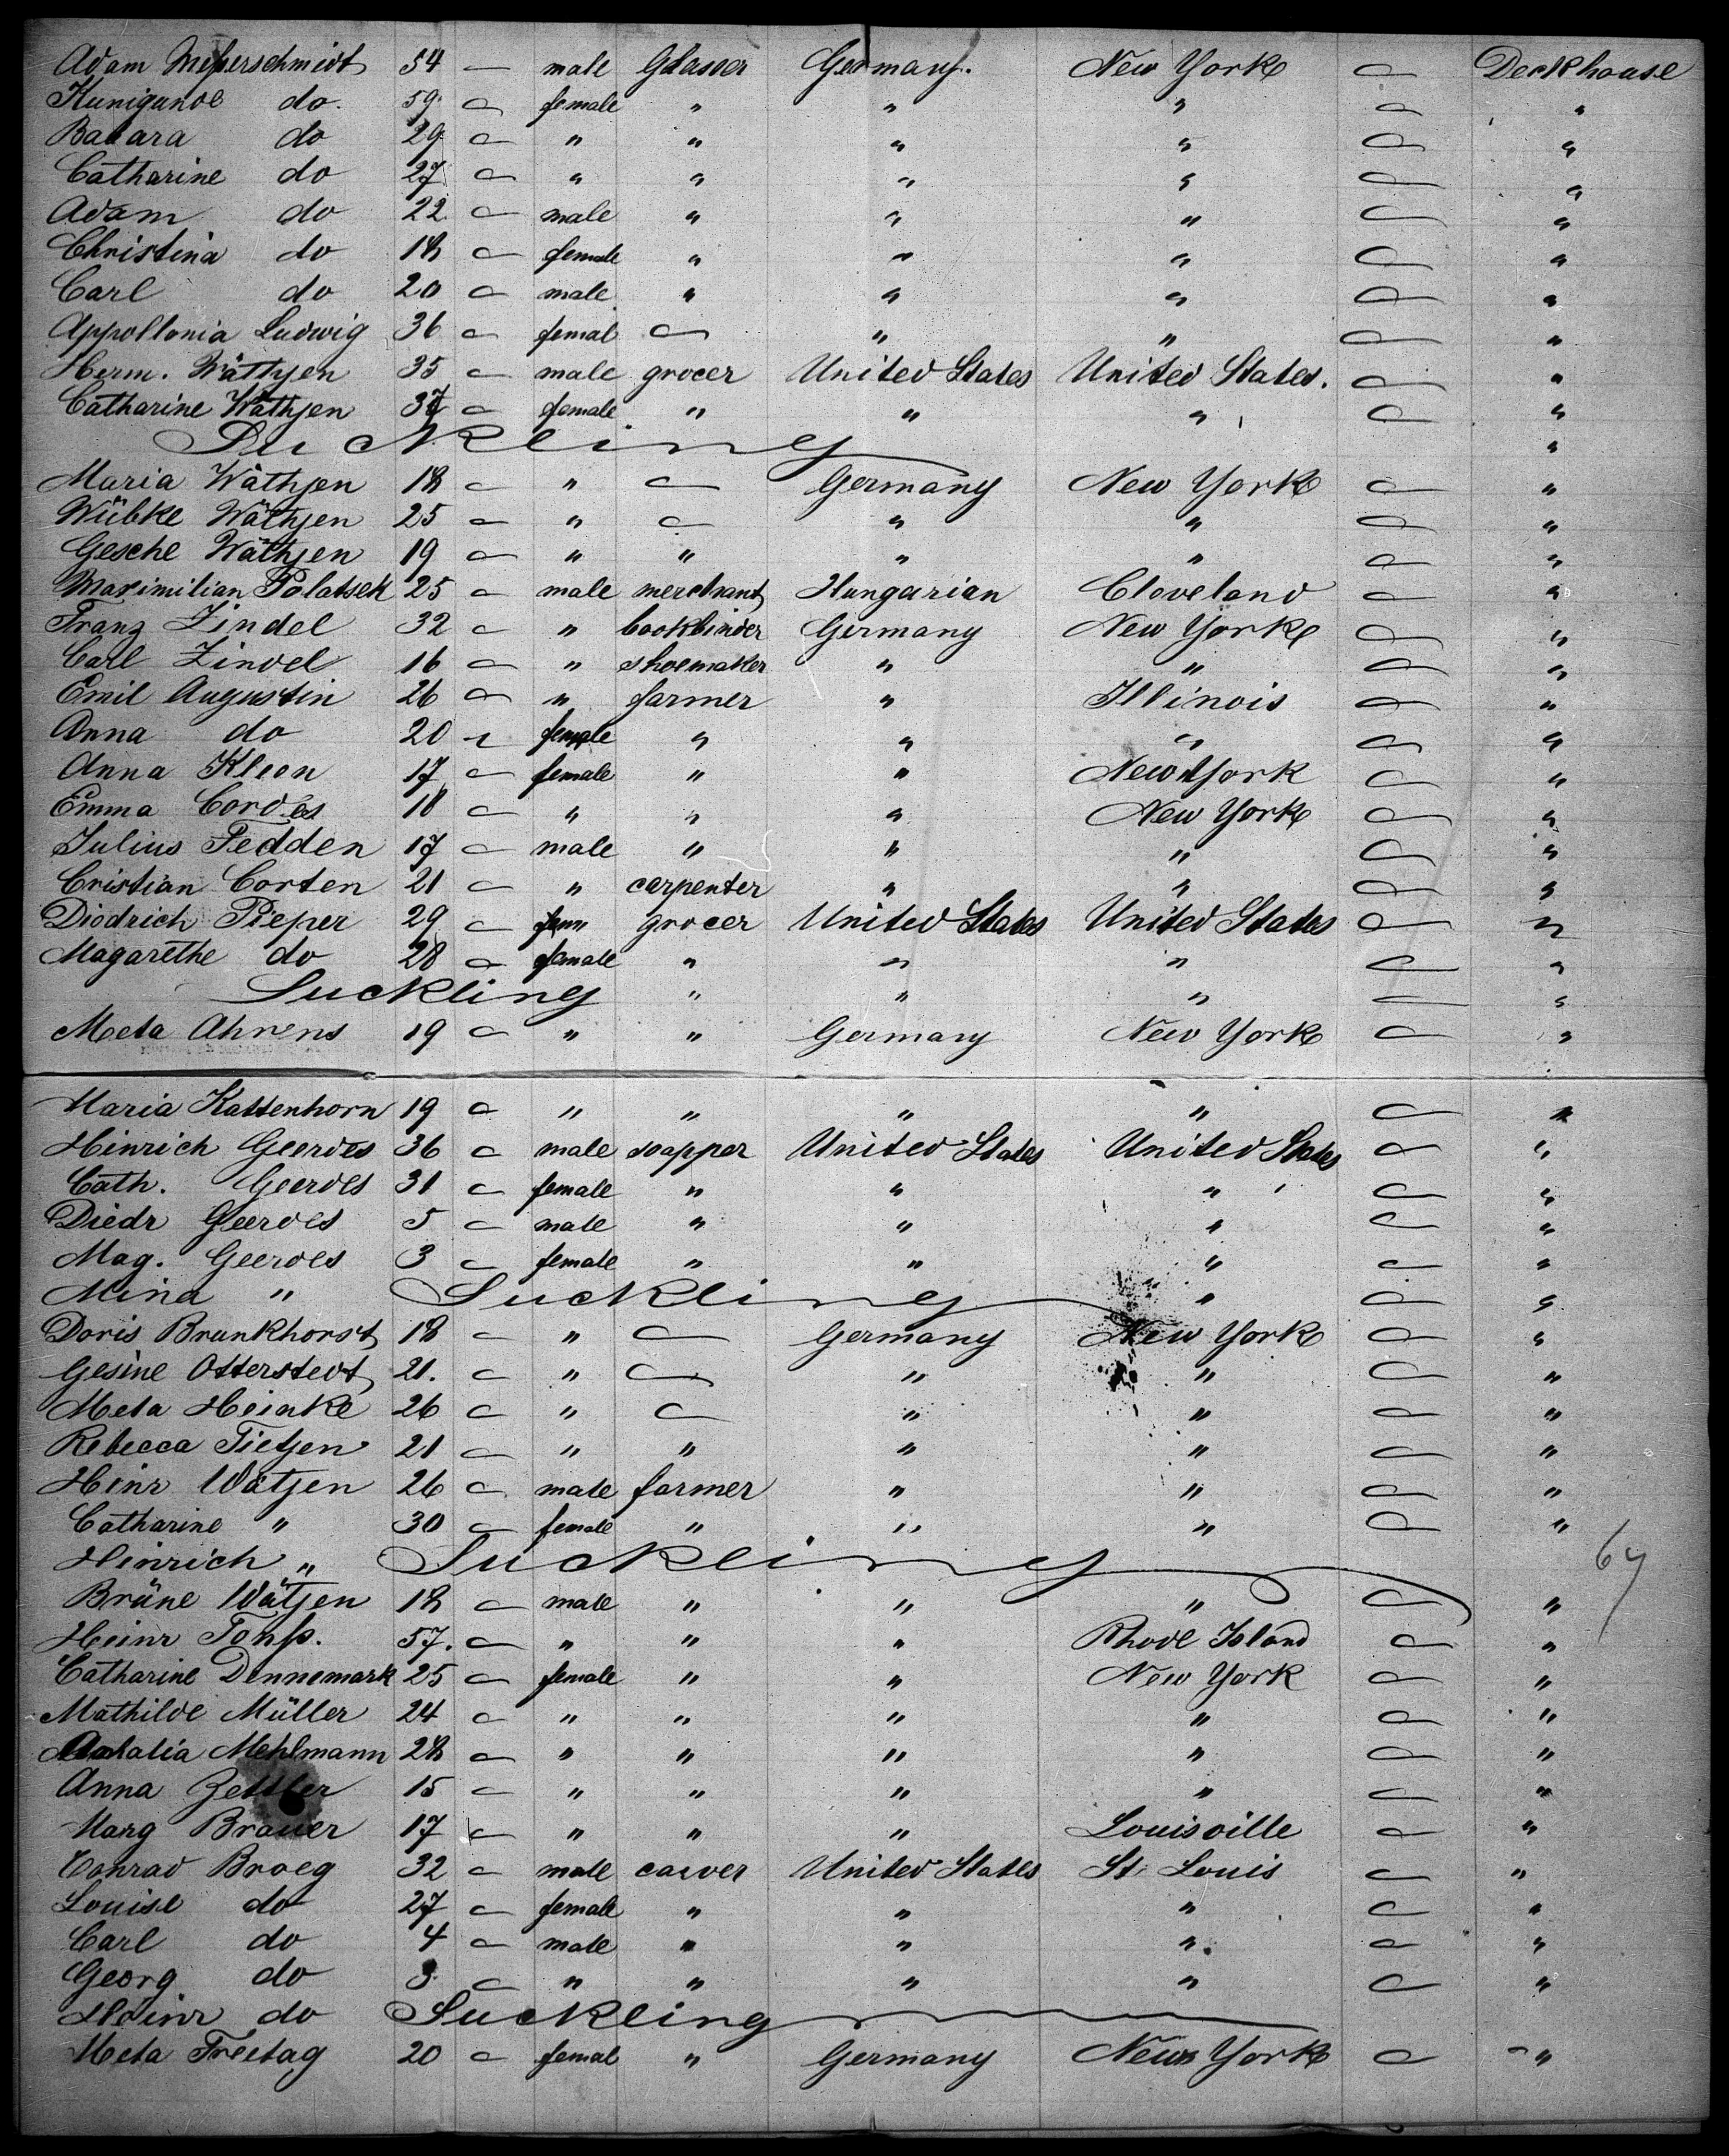 Adam Meßerschmidt 54 — male Glaser Germany. New York — Deckhouse
Kunigunde do. 59 — female " " " — "
Babara do 29 — " " " " — "
Catharine do 27 — " " " " — "
Adam do 22 — male " " " — "
Christina do 18 — female " " " — "
Carl do 20 — male " " " — "
Appollonia Ludwig 36 — femal — " " — "
Herm. Wäthjen 35 — male grocer United States United States. — "
Catharine Wäthjen 37 — female " " " — "
Suckling "
Maria Wäthjen 18 — " — Germany New York — "
Wübke Wäthjen 25 — " — " " — "
Gesche Wäthjen 19 — " " " " — "
Maximilian Polatsek 25 — male merchant Hungarian Cleveland — "
Franz Zindel 32 — " bookbinder Germany New York — "
Carl Zindel 16 — " shoemaker " " — "
Emil Augustin 26 — " farmer " Illinois — "
Anna do 20 — female " " " — "
Anna Kleen 17 — female " " New York — "
Emma Cordes 18 — " " " New York — "
Julius Fedden 17 — male " " " — "
Cristian Corten 21 — " carpenter " " — "
Diedrich Pieper 29 — " grocer United States United States — "
Magarethe do 28 — female " " " — "
Suckling " " " — "
Meta Ahrens 19 — " " Germany New York — "
Maria Kattenhorn 19 — " " " " — "
Hinrich Geerdes 36 — male soapper United States United States — "
Cath. Geerdes 31 — female " " " — "
Diedr Geerdes 5 — male " " " — "
Mag. Geerdes 3 — female " " " — "
Mina " Suckling " — "
Doris Brunkhorst 18 — " — Germany New York — "
Gesine Otterstedt 21. — " — " " — "
Meta Heinke 26 — " — " " — "
Rebecca Tietjen 21 — " " " " — "
Heinr Wätjen 26 — male farmer " " — "
Catharine " 30 — female " " " — "
Hinrich " Suckling
Brüne Wätjen 18 — male " " " — "
Heinr Tonß. 57. — " " " Rhode Island — "
Catharine Dennemark 25 — female " " New York — "
Mathilde Müller 24 — " " " " — "
Mehlmann 28 — " " " " — "
Anna Zettler 15 — " " " " — "
Marg Brauer 17 — " " " Louisville — "
Conrad Broeg 32 — male carver United States St. Louis — "
Louise do 27 — female " " " — "
Carl do 4 — male " " " — "
Georg do 3 — " " " " — "
Heinr do Suckling
Meta Freitag 20 — femal " Germany New York — "